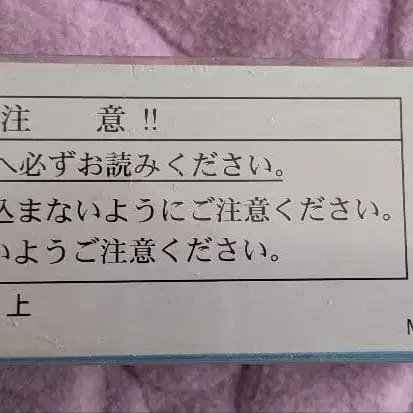 注 意 !!
へ必ずお読みください。
込まないようにご注意ください。
いようご注意ください。
上